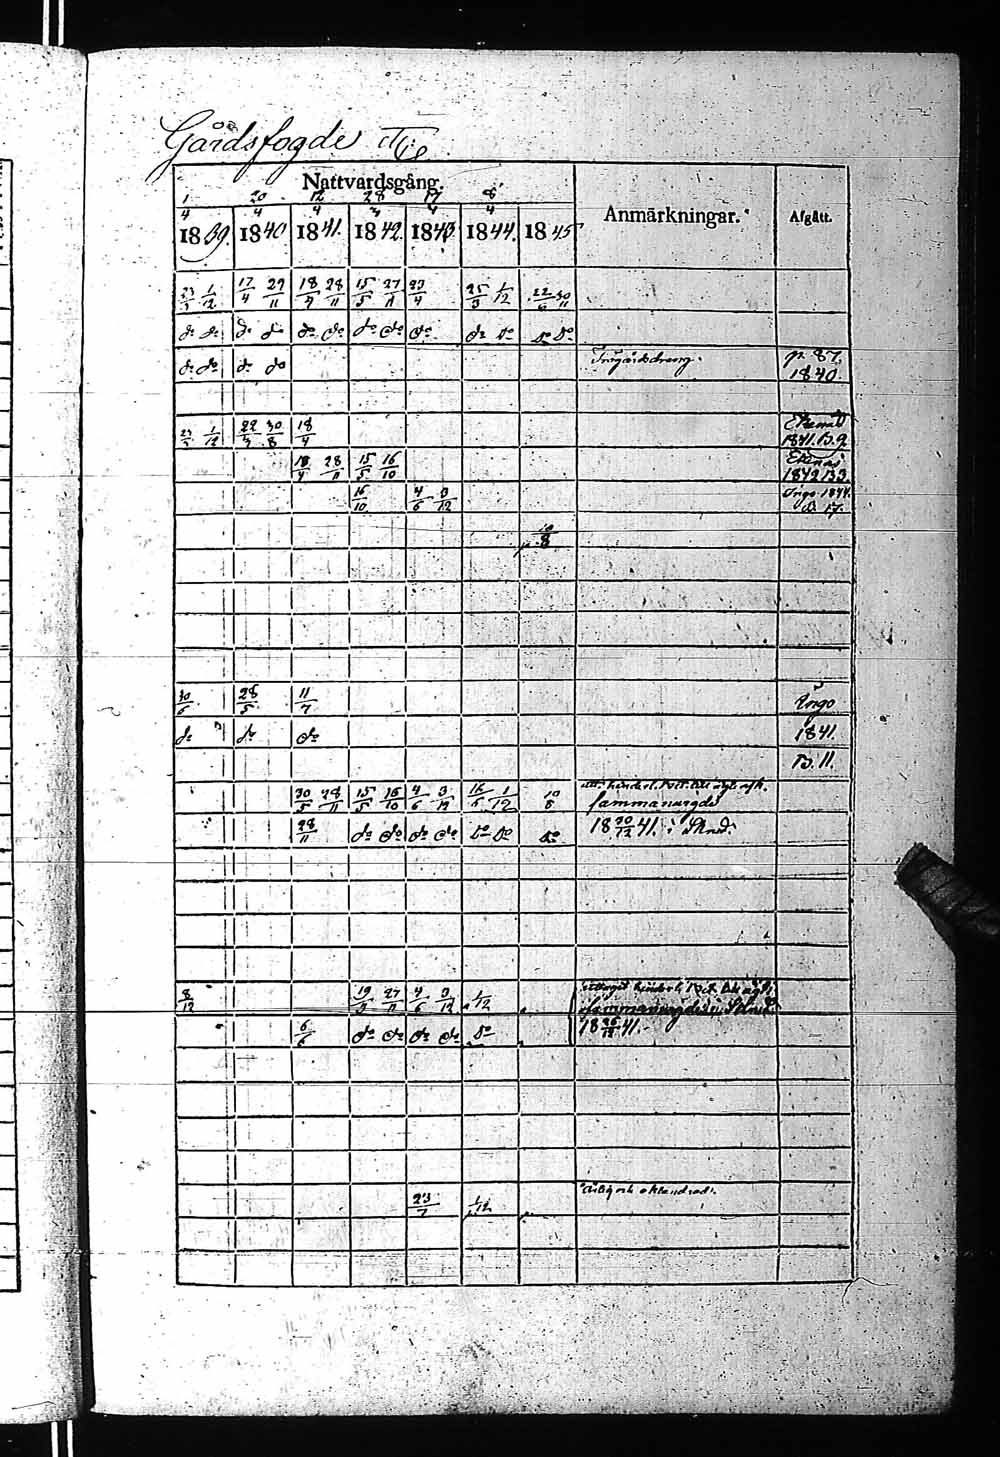 Gårdsfogde
Nattvardsgång.
Anmärkningar.
Afgått.
1/4 20/4 12/4 28/3 17/4 8/4
1839. 1840. 1841. 1842. 1843. 1844. 1845
23/3 1/12 17/4 29/11 18/4 28/11 15/5 27/11 23/4 25/3 1/12 22/6 30/11
do do do do do do do do do do do do do
do do do do Trägårdsdreng. p. 87.
1840.
23/3 1/12 22/3 30/8 18/4
1841. B. 9.
18/4 28/11 15/5 16/10 Ekenäs
1842 B3.
16/10 4/6 3/12 1844.
17.
10/8
30/6 28/5 11/7 Ängö
do do do 1841.
B. 11.
30/5 28/11 15/5 16/10 4/6 3/12 16/6 1/12 10/8 att. hinderl.
sammanvigde
28/11 do do do do do do do 18 30/12 41. i
8/12 19/3 27/11 4/6 3/12 1/12 hinderl.
sammanvigdes i
6/6 do do do do do 18 26/12 41.
23/7 1/12 Ärlig och oklandrad.